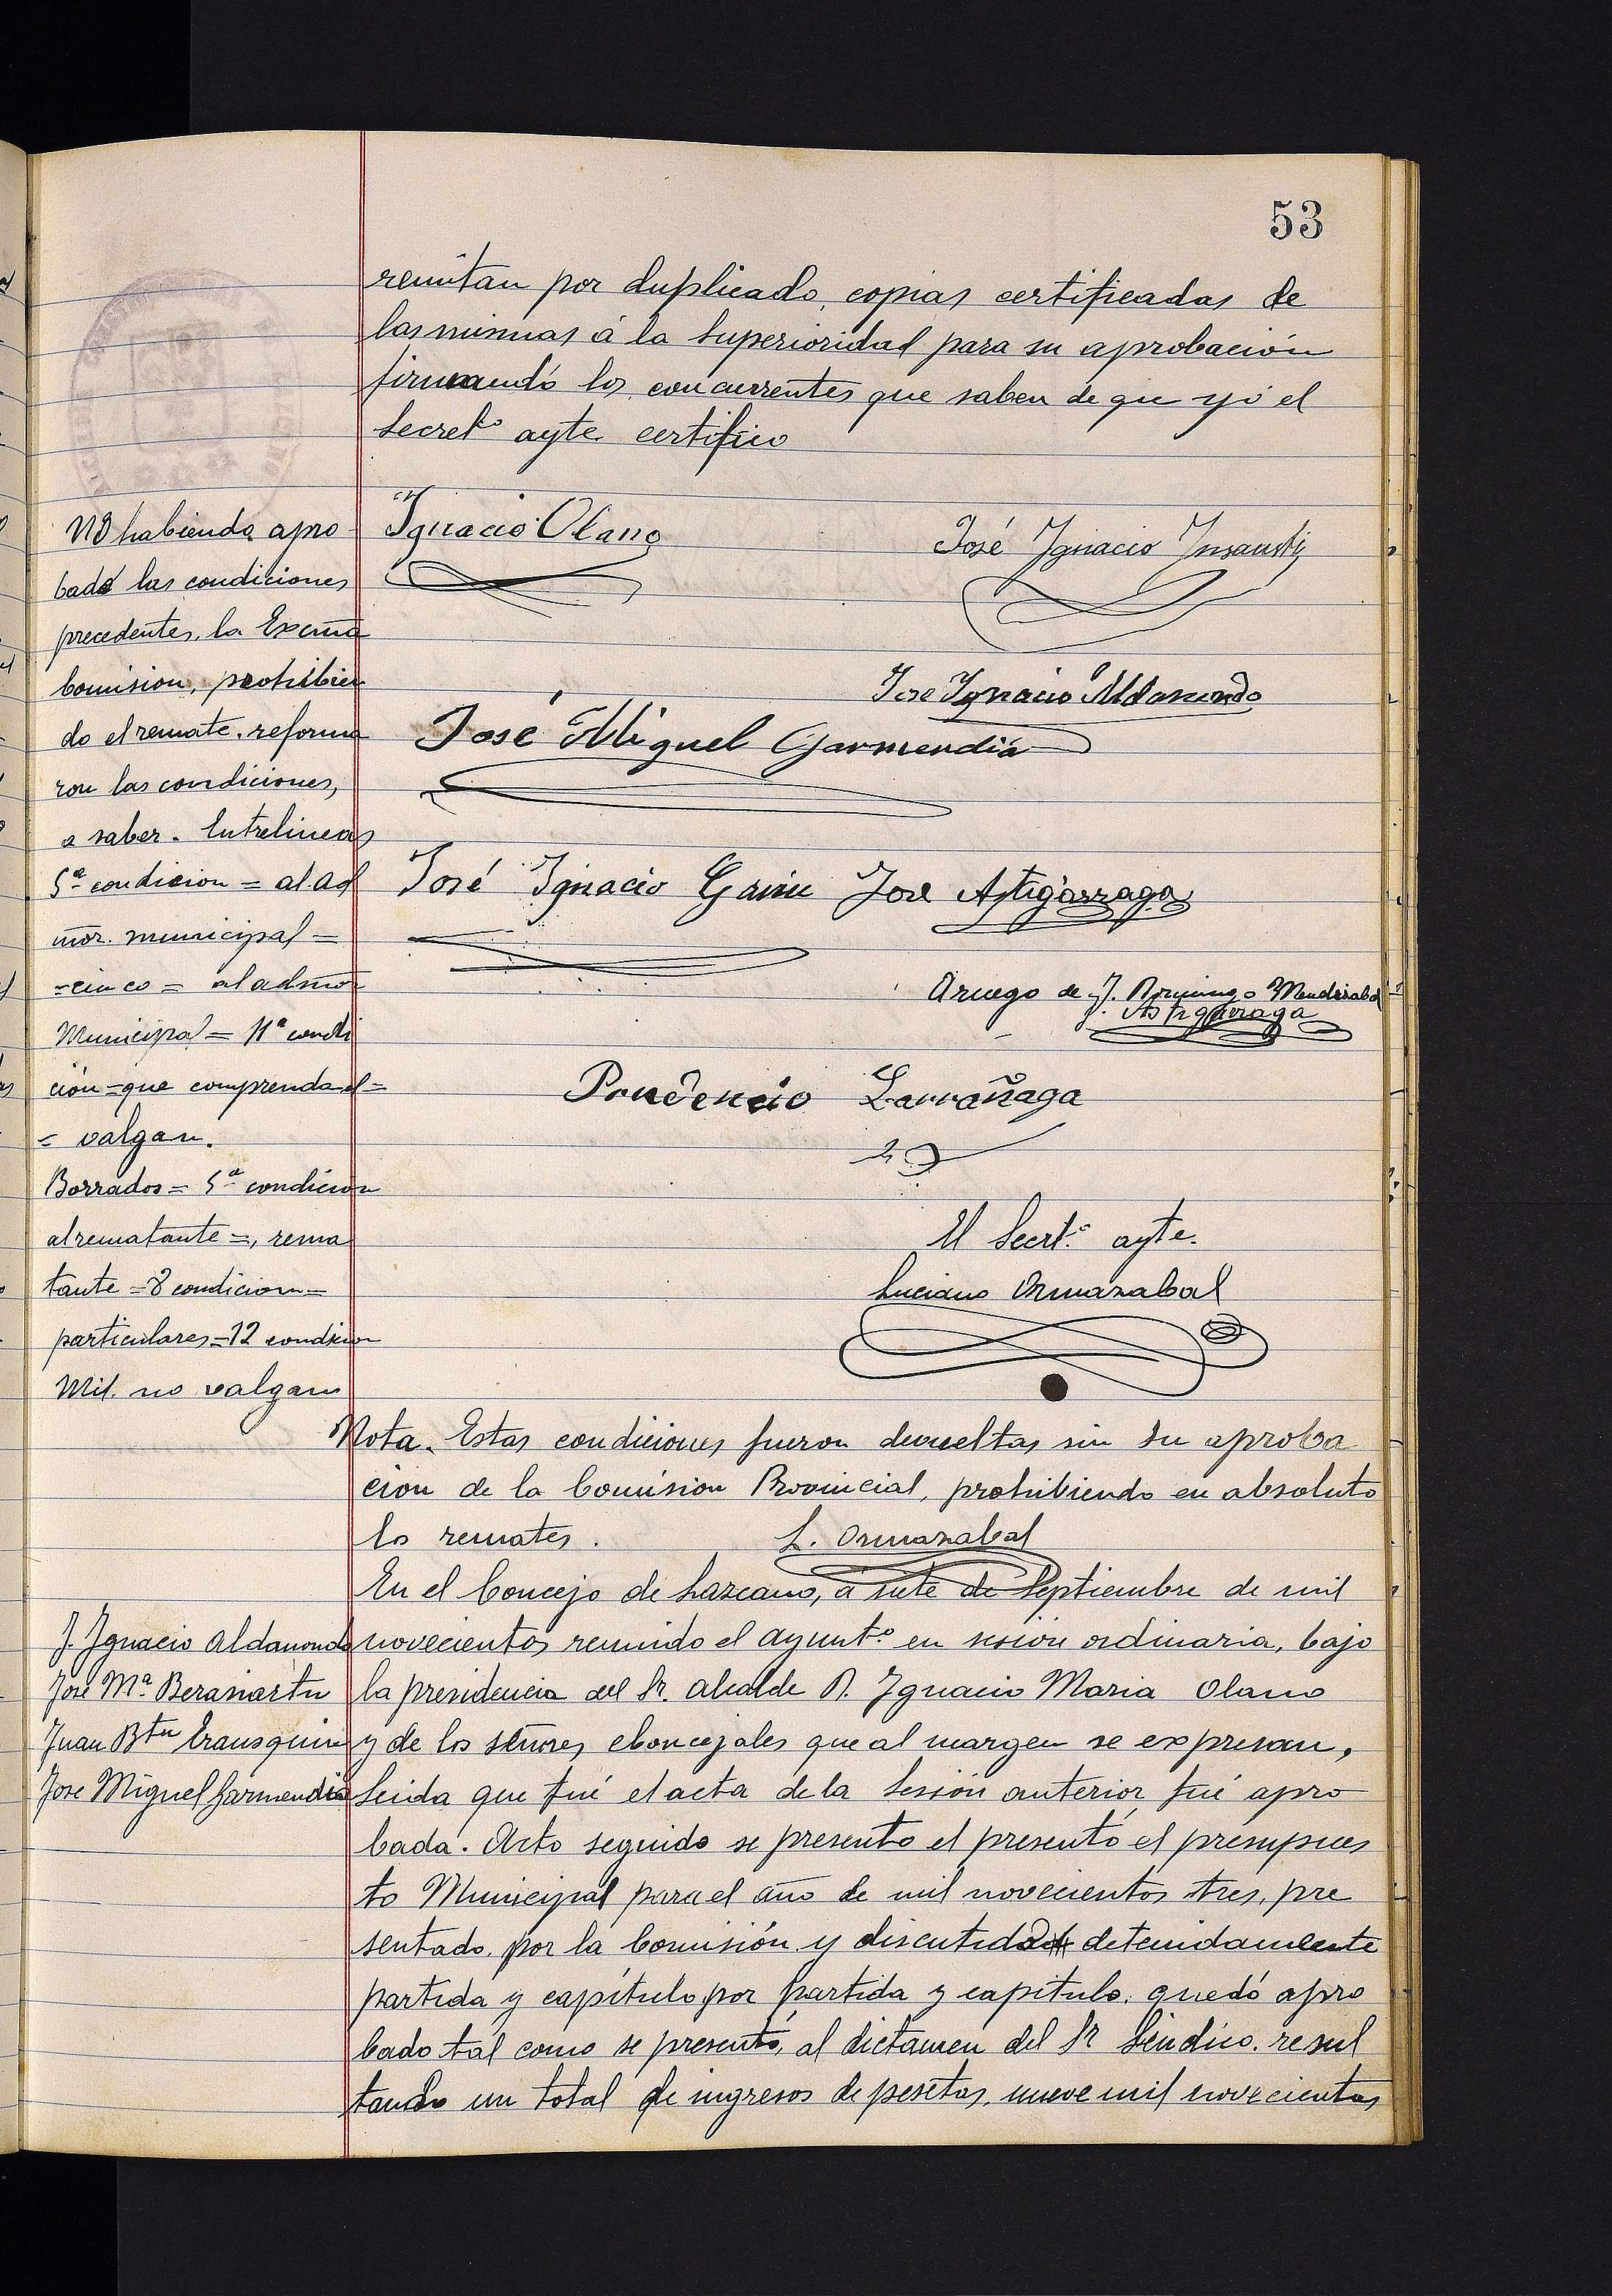 53
remitan por duplicado, copias certificadas de
las mismas á la Superioridad para su aprobación
firmando los concurrentes que saben de que yó el
Secretº ayte certifico
Nó habiendo apro
bado las condiciones
precedentes, la Excma
Comision, prohibien
do el remate, reforma
ron las condiciones,
a saber. Entrelineas
5ª condicion = al ad
mor. municipal =
= cinco = al admor
Municipal = 11ª condi
ción = que comprenda el =
= valgan.
Borrados = 5ª condicion
al rematante =, rema
tante = 8 condicion =
particulares = 12 condicion
Mil. no valgan
Ignacio Olano
José Ignacio Insausti
Jose Ignacio Aldanondo
José Miguel Garmendia
José Ignacio
José Astigarraga
Aruego de J. Domingo Mendizabal
J. Astigarraga
Prudencio Larrañaga
El Secrtº ayte.
Luciano Ormazabal
Nota. Estas condiciones fueron devueltas sin su aproba
cion de la Comision Provincial, prohibiendo en absoluto
los remates. L. Ormazabal
J. Ignacio Aldanondo
José Mª Berasiartu
Juan Btu Erausquin
Jose Miguel Garmendia
En el Concejo de Lazcano, á siete de Septiembre de mil
novecientos reunido el ayuntº en sesión ordinaria, bajo
la presidencia del Sr. alcalde D. Ignacio Maria Olano
y de los señores concejales que al margen se expresan,
leida que fué el acta de la Sesión anterior fué apro
bada. Acto seguido se presento el presentó el presupues
to Municipal para el año de mil novecientos tres, pre
sentado, por la Comisión y discutido detenidamente
partida y capítulo por partida y capítulo, quedó apro
bado tál como se presentó, al dictamen del Sr Sindico, resul
tando un total de ingresos de pesetas, nueve mil novecientas